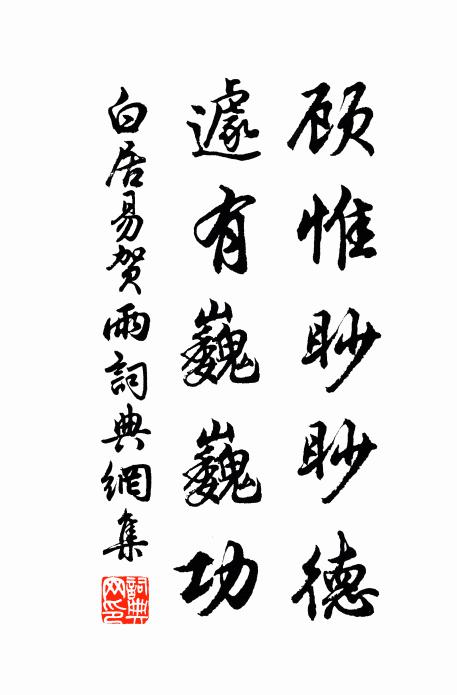 顾惟眇眇德
遽有巍巍功
白居易贺雨詞典網集
詞典網印